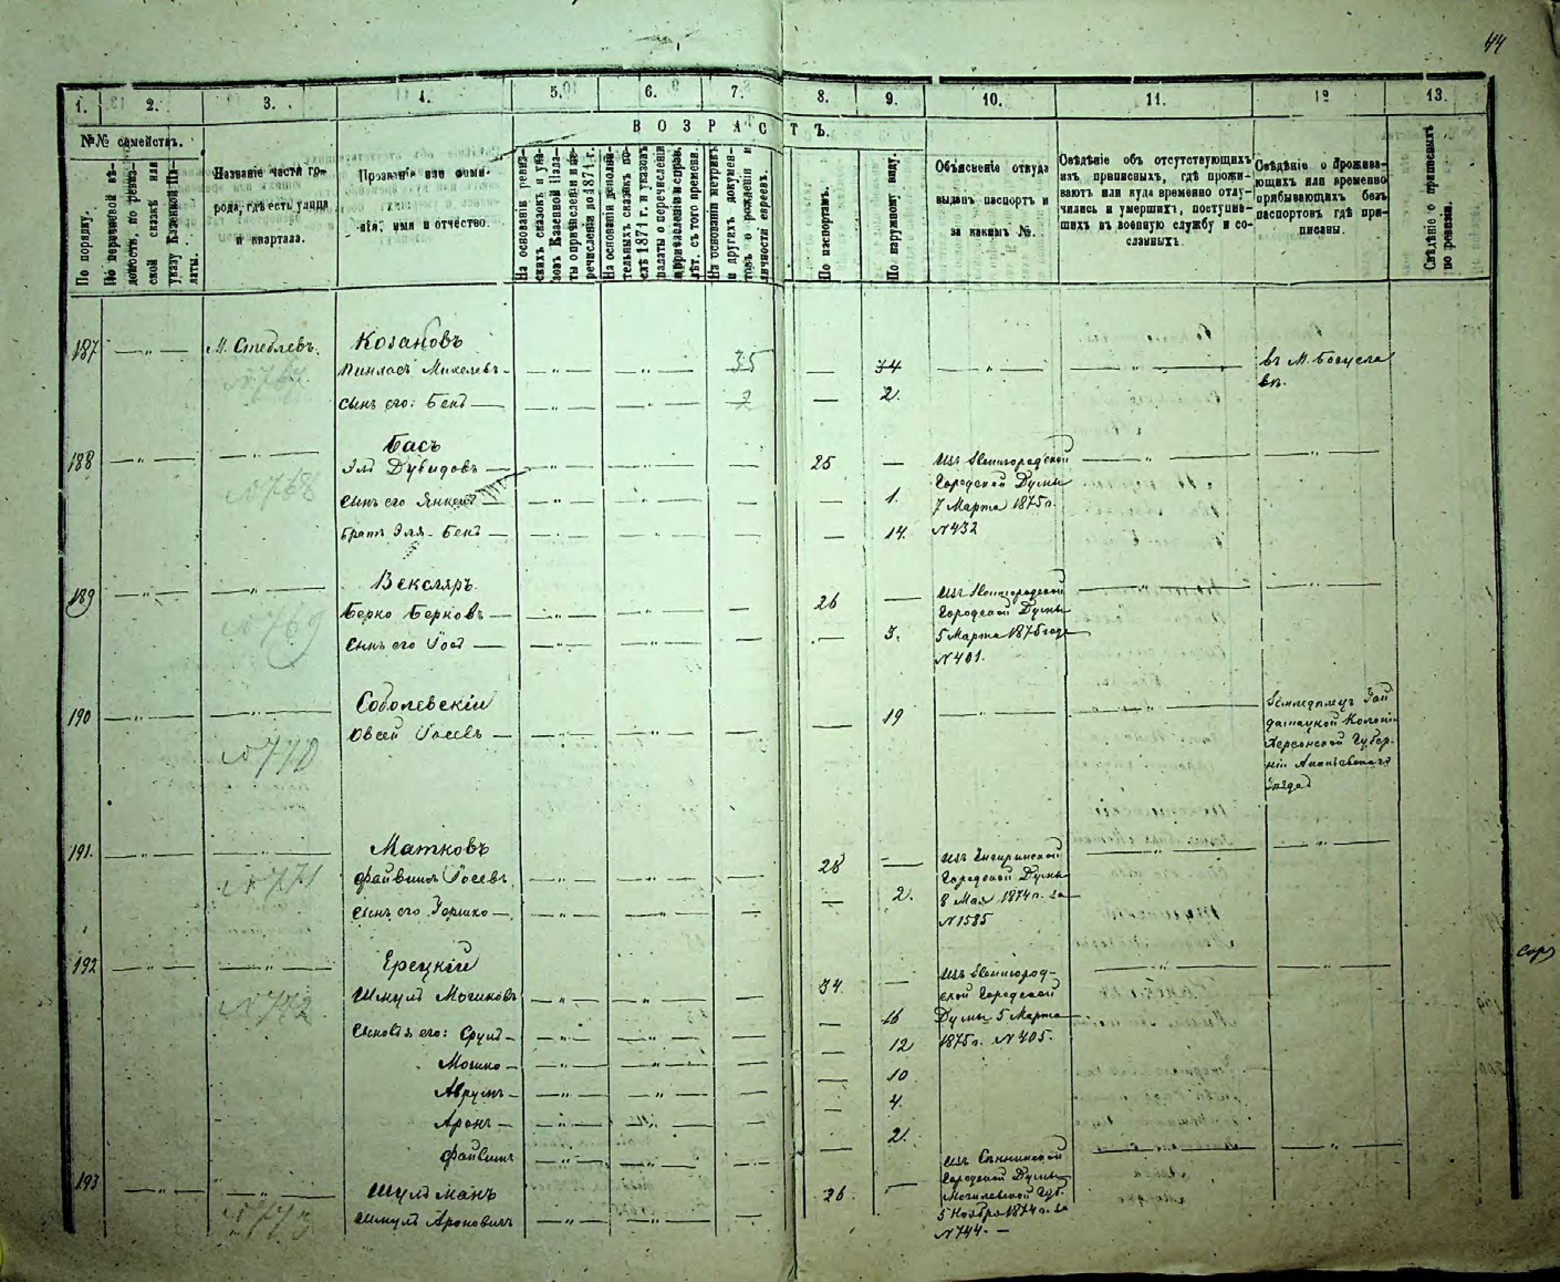 44
1. 2. 3. 4. 5. 6. 7. 8. 9. 10. 11. 12 13.
ВОЗРАСТЪ.
№№ семействъ.
По порядку.
По перечневой вѣ-
домости, по ревиз-
ской сказкѣ или
указу Казенной Па-
латы.
Названіе части го-
рода, гдѣ есть улица
и квартала.
Прозваніе или фами-
лія, имя и отчество.
На основаніи ревиз-
скихъ сказокъ и ука-
зовъ Казенной Пала-
ты о причисленіи и пе-
речисленіи до 1874 г.
На основаніи дополни-
тельныхъ сказокъ по-
слѣ 1874 г. и указовъ
палаты о перечисленіи
и причисленіи и справ.
лѣт. съ того времени.
На основаніи метрикъ
и другихъ докумен-
товъ о рожденіи и
личности евреевъ.
По паспортамъ.
По наружному виду.
Объясненіе откуда
выданъ паспортъ и
за какимъ №.
Свѣдѣніе объ отсутствующихъ
изъ приписныхъ, гдѣ прожи-
ваютъ или куда временно отлу-
чились и умершихъ, поступив-
шихъ въ военную службу и со-
сланныхъ.
Свѣдѣніе о прожива-
ющихъ или временно
прибывающихъ безъ
паспортовъ гдѣ при-
писаны.
Свѣдѣніе о приписныхъ
по ревизіи.
187 — „ — М. Стеблевъ. Козановъ
№767. Пинхасъ Михелевъ — — „ — — „ — 35 — 34 — „ — — „ — въ М. Богусла
вѣ.
сынъ его: Бенд — — „ — — „ — 2 — 2.
188 — „ — — „ — Басъ
№768 Эля Дувидовъ — — „ — — „ — — 25 — изъ Звенигородской — „ — — „ —
Городской Думы
сынъ его Янкель — — „ — — „ — — — 1. 7 Марта 1875 г.
братъ Эля - Бенд — — „ — — „ — — — 14. №432
189 — „ — — „ — Векслярь.
Берко Берковъ — — „ — — „ — — 26 — изъ Звенигородской — „ — — „ —
Городской Думы
сынъ его Іосъ — — „ — — „ — — — 3. 5 Марта 1875 года
№401.
190 — „ — — „ — Соболевскій
№770 Овсей Іосевъ — — „ — — „ — — — 19 — „ — — „ —
Колоніи
Херсонской Губер-
ніи Ананьевскаго
уѣзда
191. — „ — — „ — Матковъ
№771 Файвишъ Іосевъ. — „ — — „ — — 28 — изъ Чигиринской — „ — — „ —
Городской Думы
сынъ его Гершко — — „ — — „ — — — 2. 8 Мая 1874 г. за
№1585
192 — „ — — „ — Ерецкій
№772 Шмуль Мошковъ — „ — — „ — — 34 — изъ Звенигород- — „ — — „ —
ской Городской
Сыновья его: Сруль — — „ — — „ — — — 16 Думы 5 Марта
Мошко — — „ — — „ — — — 12 1875 г. №405.
Аврумъ — — „ — — „ — — — 10
Аронъ — — „ — — „ — — — 4.
Файвишъ — „ — — „ — — — 2.
193 — „ — — „ — Шульманъ
№773 Шмуль Ароновичъ — „ — — „ — — 26. — изъ Сѣннинской — „ — — „ —
Городской Думы
Могилевской Губ.
5 Ноября 1874 г. за
№744. —